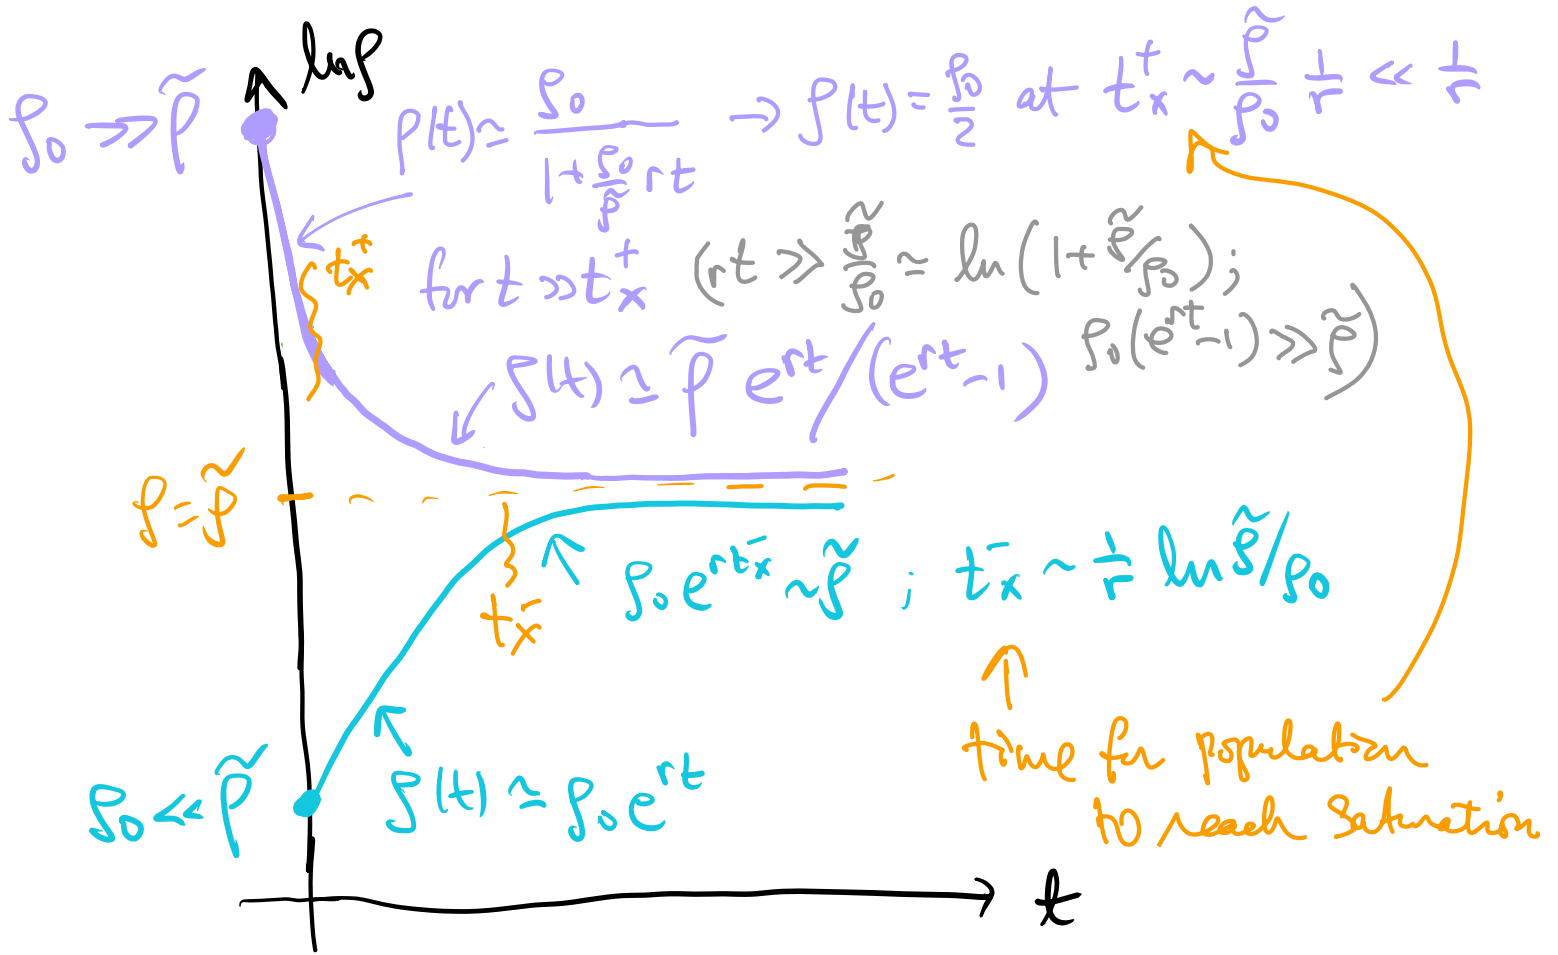 ln ρ
ρ₀ ≫ ρ̃
ρ(t) ≃ ρ₀ / (1 + (ρ₀/ρ̃) rt) → ρ(t) = ρ₀/2 at tₓ⁺ ~ (ρ̃/ρ₀) (1/r) ≪ 1/r
tₓ⁺
for t ≫ tₓ⁺ (rt ≫ ρ̃/ρ₀ ≃ ln(1 + ρ̃/ρ₀);
ρ₀(eʳᵗ−1) ≫ ρ̃)
ρ(t) ≃ ρ̃ eʳᵗ/(eʳᵗ−1)
ρ = ρ̃
tₓ⁻
ρ₀e^(rtₓ⁻) ~ ρ̃ ; tₓ⁻ ~ (1/r) ln ρ̃/ρ₀
time for population
to reach saturation
ρ₀ ≪ ρ̃
ρ(t) ≃ ρ₀eʳᵗ
t